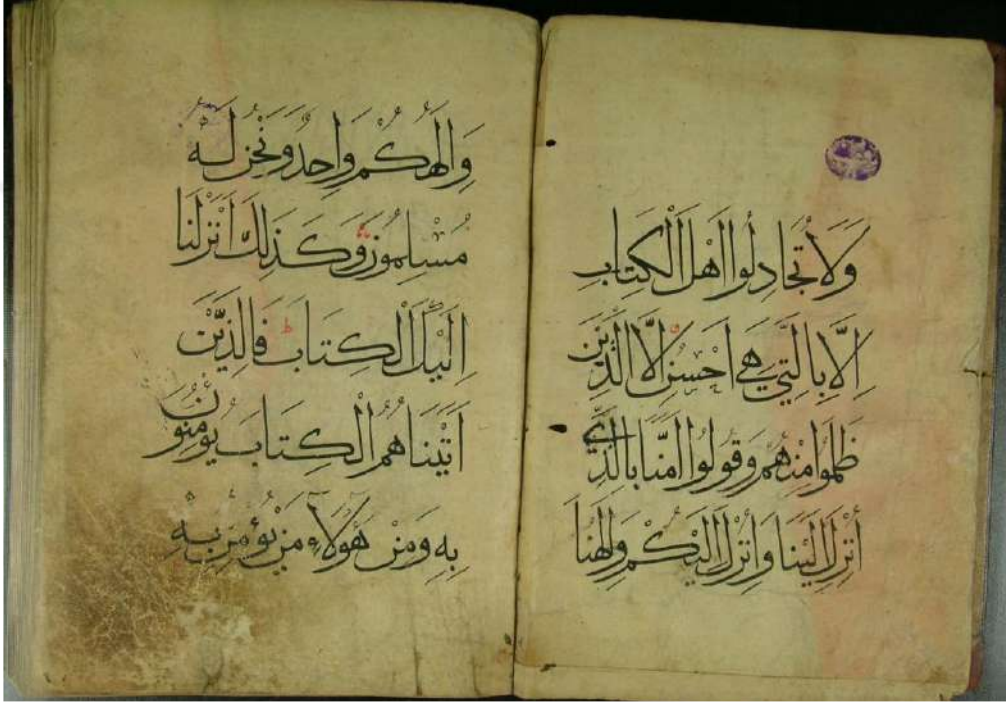 وَلَا تُجَادِلُوا اَهْلَ الْكِتَابِ
اِلَّا بِالَّتِي هِيَ اَحْسَنُ اِلَّا الَّذِينَ
ظَلَمُوا مِنْهُمْ وَقُولُوا اٰمَنَّا بِالَّذِي
اُنْزِلَ اِلَيْنَا وَاُنْزِلَ اِلَيْكُمْ وَاِلٰهُنَا
وَاِلٰهُكُمْ وَاحِدٌ وَنَحْنُ لَهُ
مُسْلِمُونَ وَكَذٰلِكَ اَنْزَلْنَا
اِلَيْكَ الْكِتَابَ فَالَّذِينَ
اٰتَيْنَاهُمُ الْكِتَابَ يُؤْمِنُونَ
بِهِ وَمِنْ هٰؤُلَاءِ مَنْ يُؤْمِنُ بِهِ